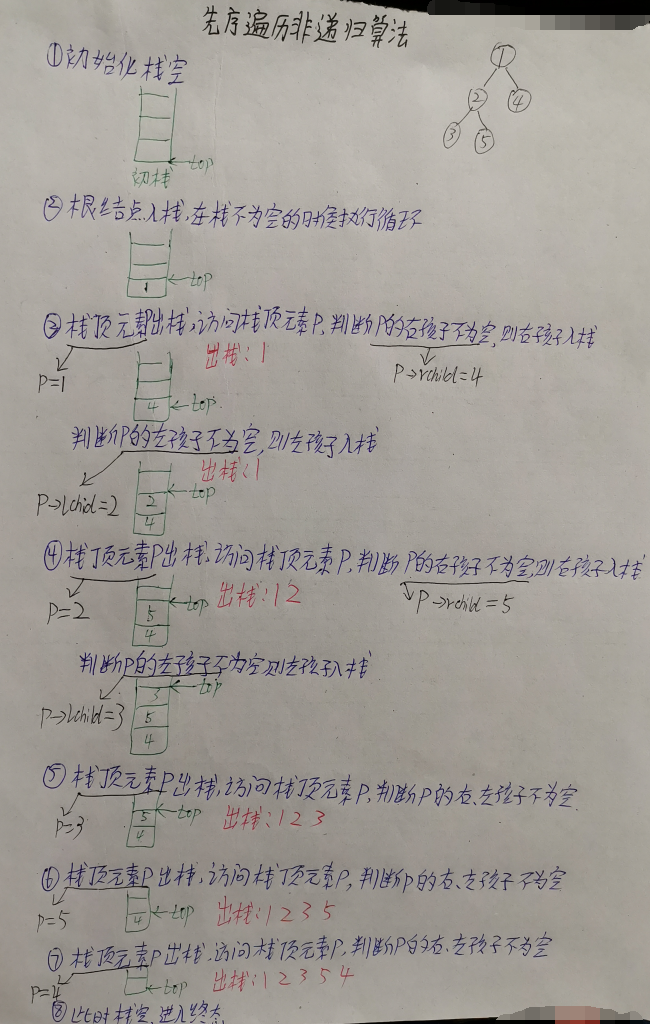 先序遍历非递归算法
①初始化栈空
1
2 4
3 5
←top
初栈
②根结点入栈,在栈不为空的时侯执行循环
←top
1
③栈顶元素P出栈,访问栈顶元素P,判断P的右孩子不为空,则右孩子入栈
出栈:1
P=1
P→rchild=4
4 ←top
判断P的左孩子不为空,则左孩子入栈
出栈:1
←top
P→lchild=2
2
4
④栈顶元素P出栈,访问栈顶元素P,判断P的右孩子不为空,则右孩子入栈
P=2
←top
出栈:1 2
P→rchild=5
5
4
判断P的左孩子不为空则左孩子入栈
3 ←top
P→lchild=3
5
4
⑤栈顶元素P出栈,访问栈顶元素P,判断P的右、左孩子不为空
P=3
5 ←top
出栈:1 2 3
4
⑥栈顶元素P出栈,访问栈顶元素P,判断P的右、左孩子不为空
P=5
4 ←top
出栈:1 2 3 5
⑦栈顶元素P出栈,访问栈顶元素P,判断P的右、左孩子不为空
P=4
←top
出栈:1 2 3 5 4
⑧此时栈空,进入终态